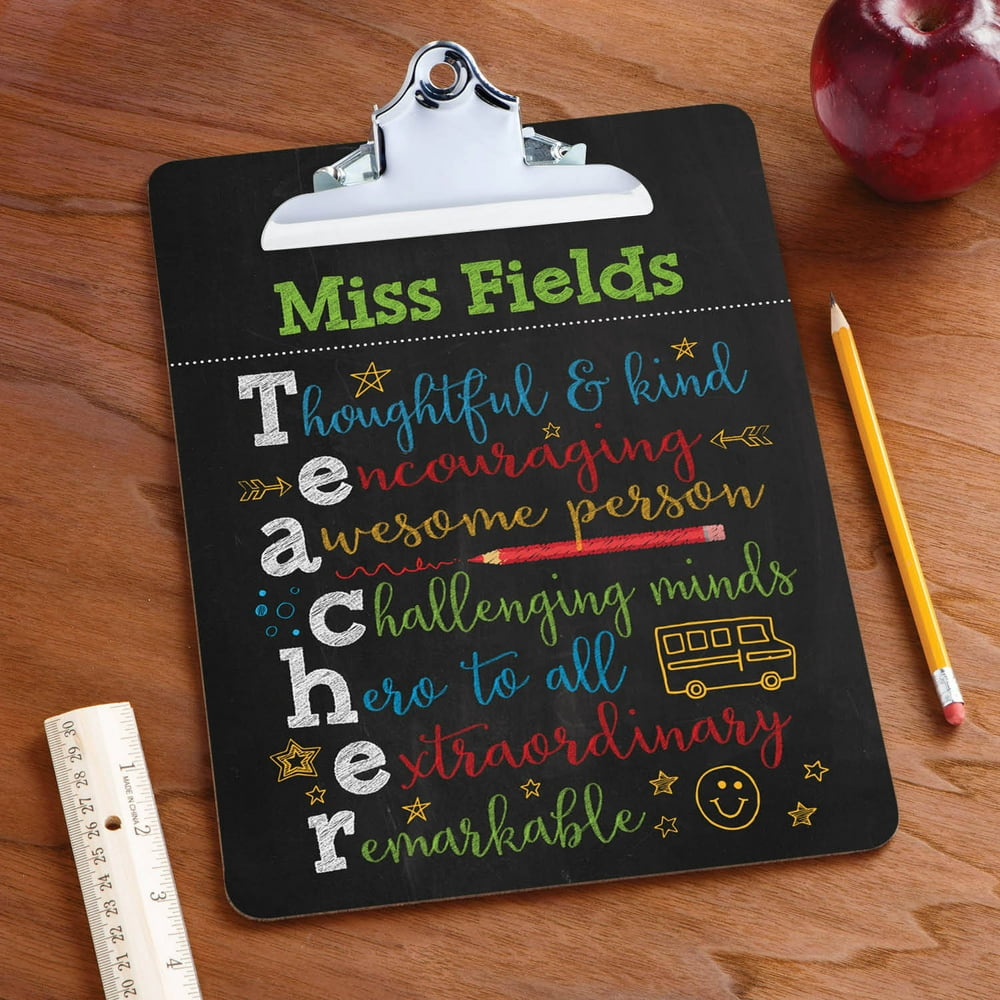 Miss Fields
Thoughtful & kind
encouraging
awesome person
challenging minds
hero to all
extraordinary
remarkable
30 29 28 27 26 25 24 23 22 21 20
MADE IN CHINA
1 2 3 4